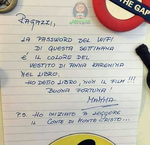 THE GAP
RAGAZZI,
LA PASSWORD DEL WIFI
DI QUESTA SETTIMANA
È IL COLORE DEL
VESTITO DI ANNA KARENINA
NEL LIBRO.
HO DETTO LIBRO, NON IL FILM!!!
BUONA FORTUNA!
MAMMA
P.S. HO INIZIATO A LEGGERE
IL CONTE DI MONTECRISTO...